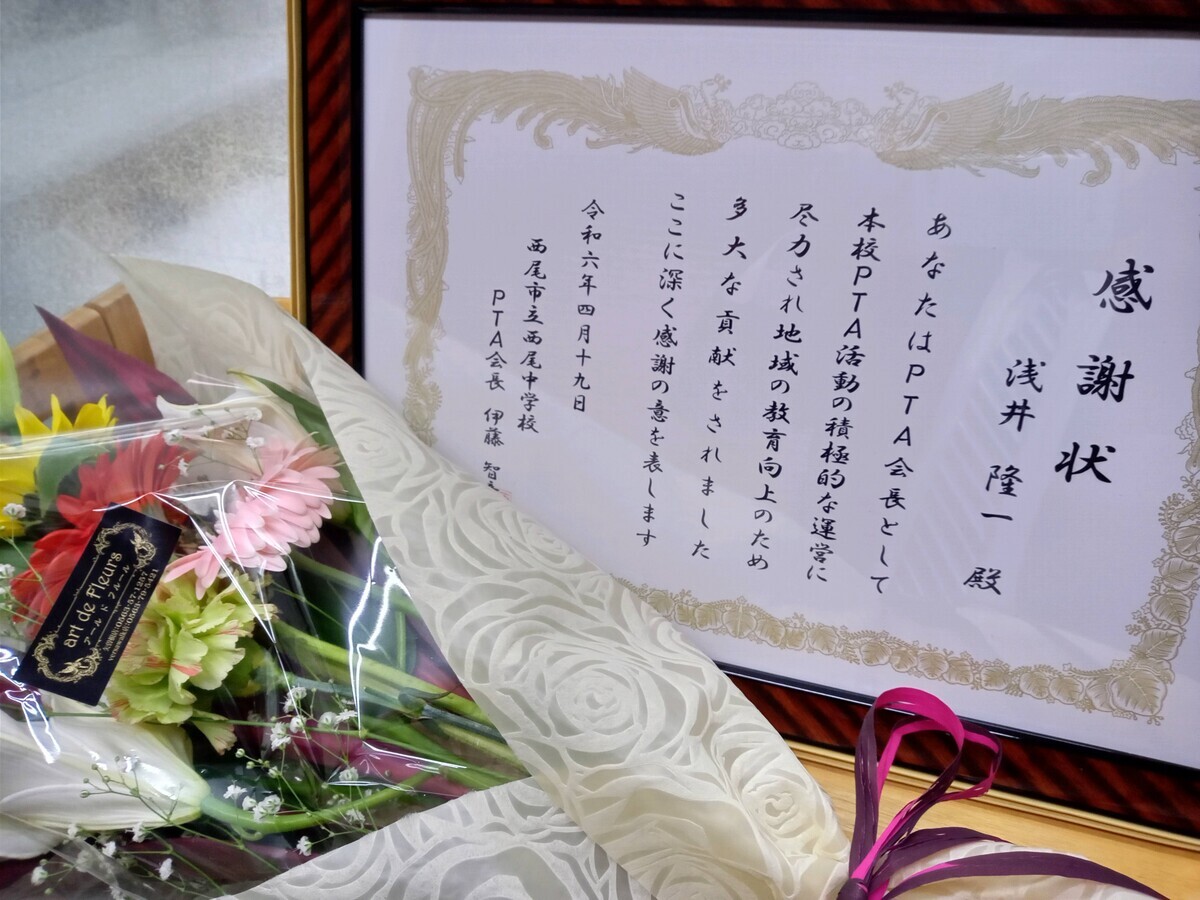 感謝状
浅井 隆一 殿
あなたはPTA会長として
本校PTA活動の積極的な運営に
尽力され地域の教育向上のため
多大な貢献をされました
ここに深く感謝の意を表します
令和六年四月十九日
西尾市立西尾中学校
PTA会長 伊藤 智
art de Fleurs
アール ド フルール